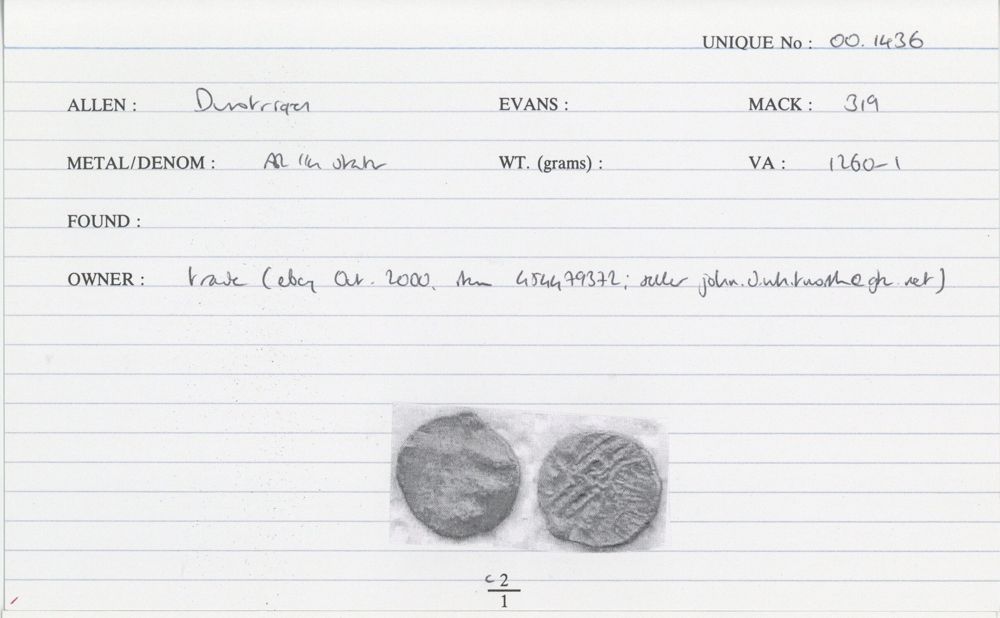 UNIQUE No : 00.1436
ALLEN : Durotrigan EVANS : MACK : 319
METAL/DENOM : AR 1/4 stater WT. (grams) : VA : 1260-1
FOUND :
OWNER : trade (ebay Oct. 2000, item 454479372; seller
c 2
1